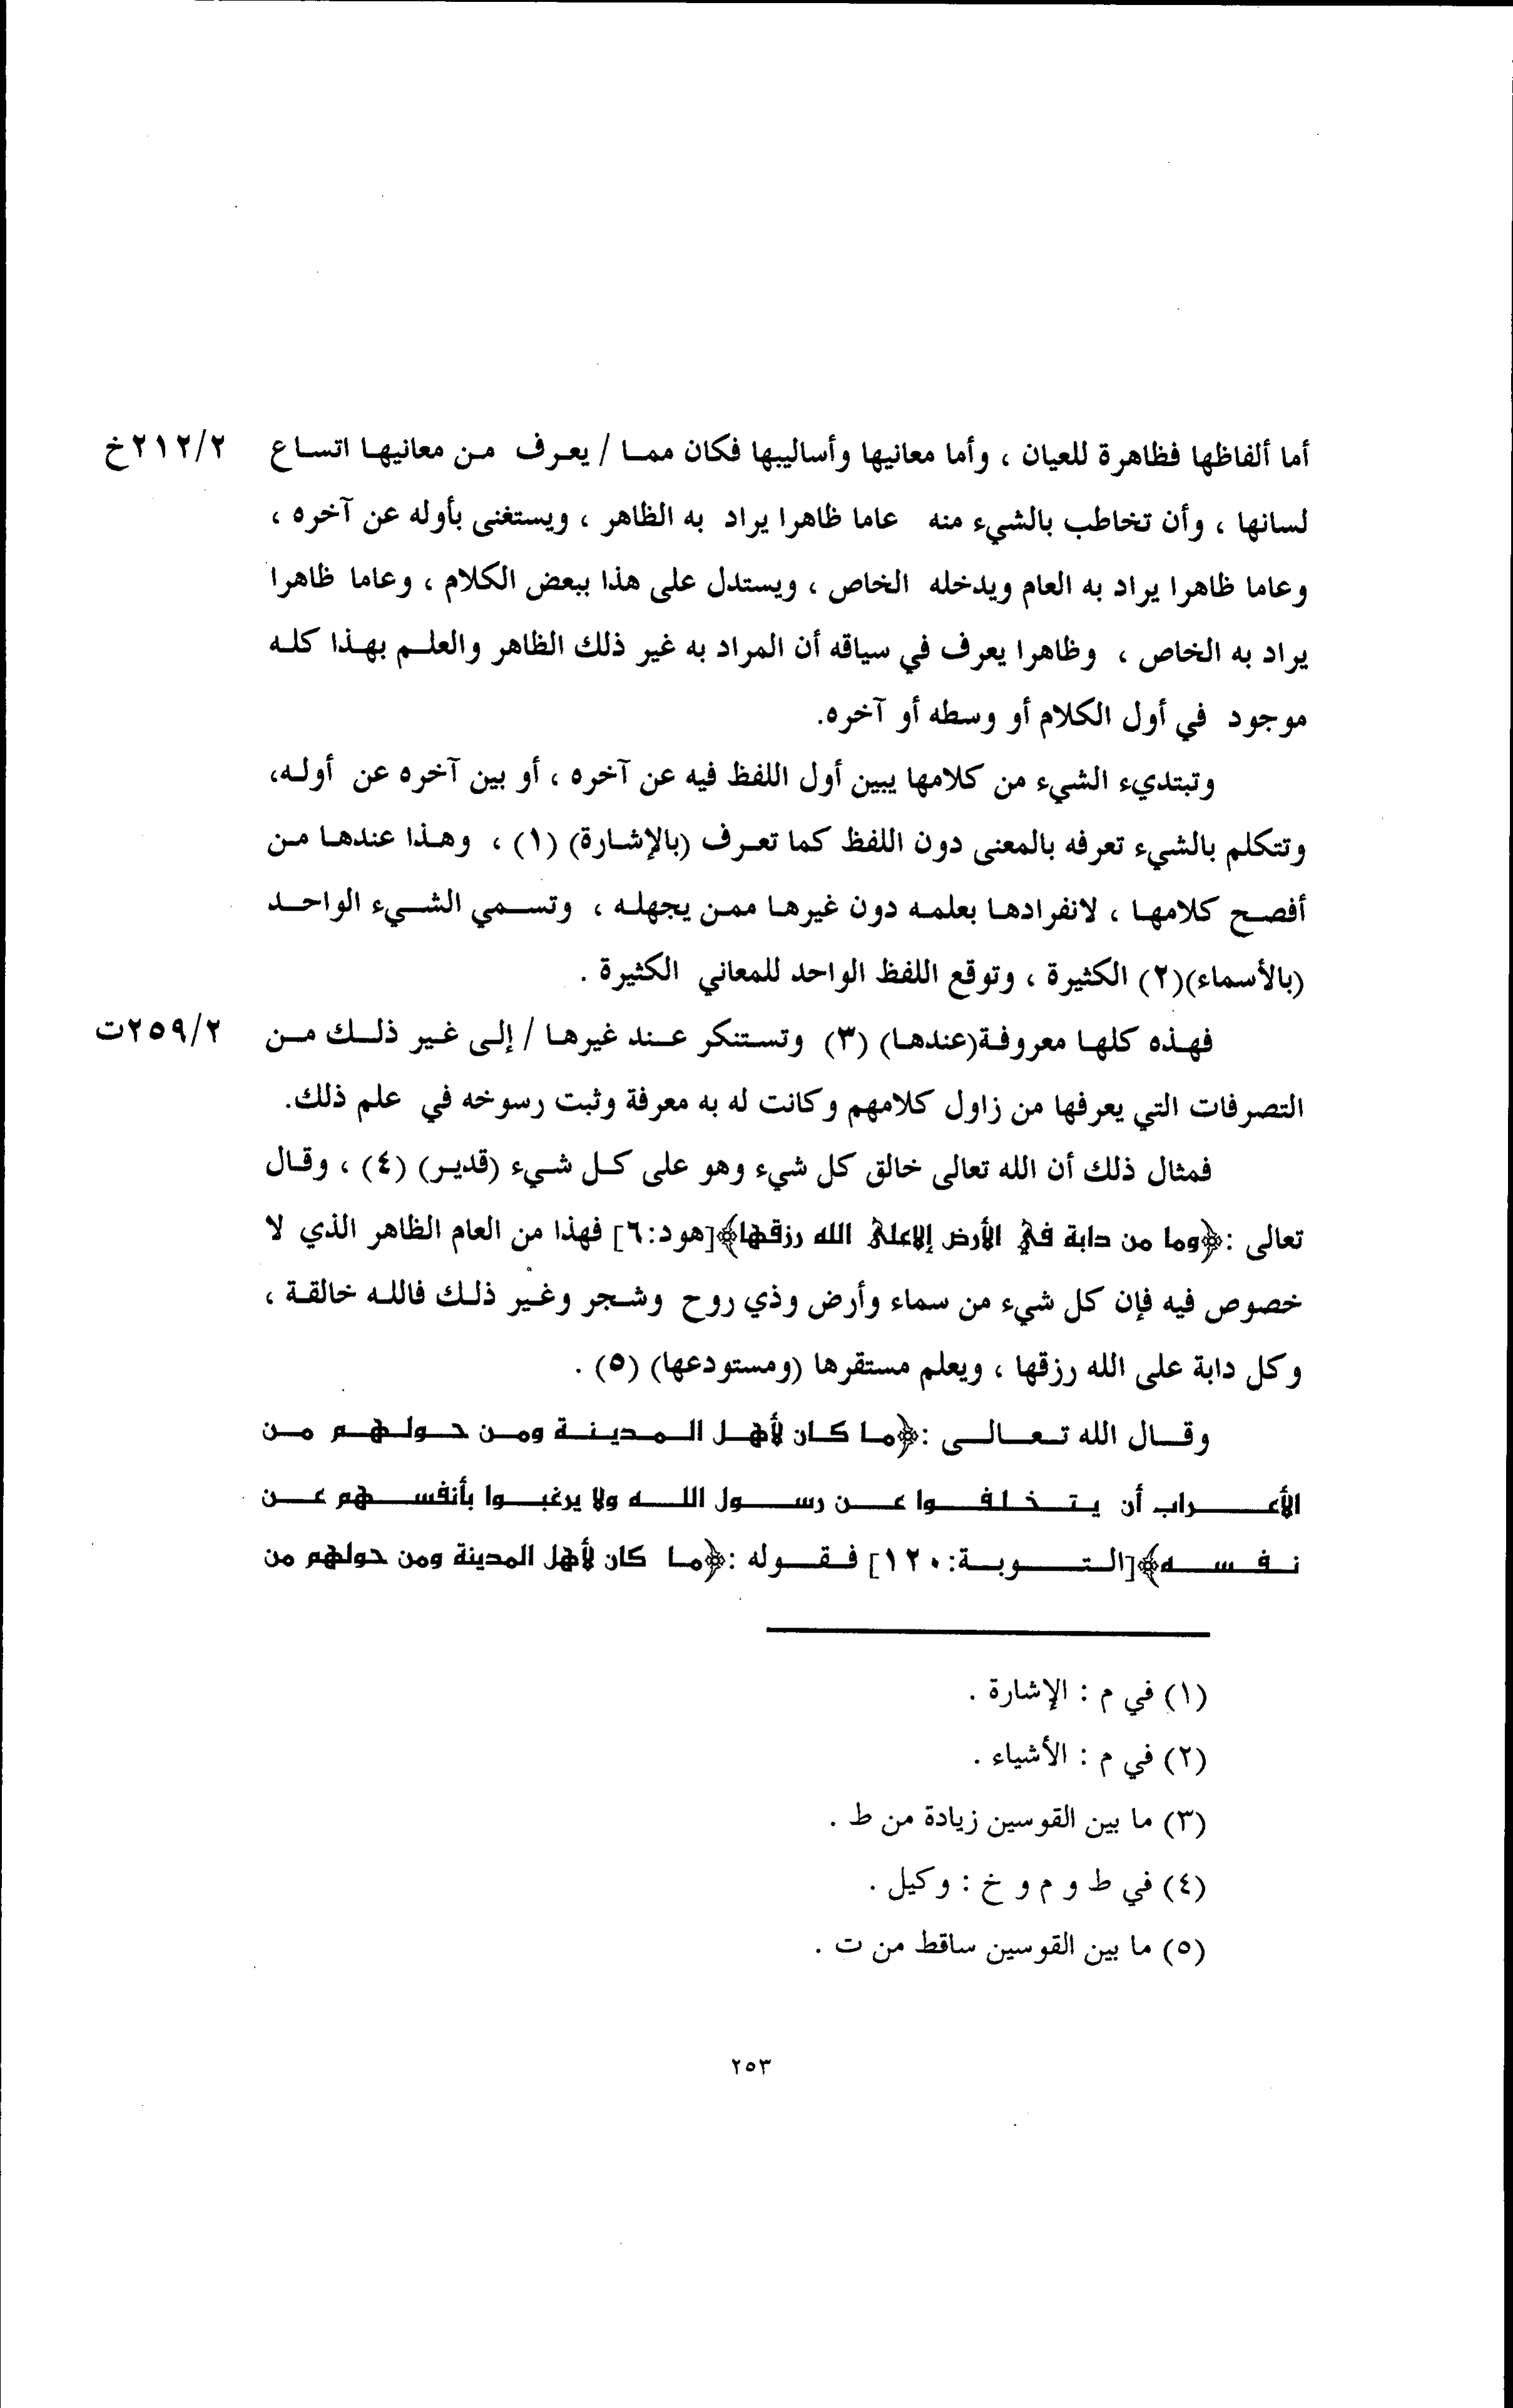 أما ألفاظها فظاهرة للعيان ، وأما معانيها وأساليبها فكان ممـا / يعـرف مـن معانيهـا اتسـاع ٢١٢/٢خ
لسانها ، وأن تخاطب بالشيء منه عاما ظاهرا يراد به الظاهر ، ويستغنى بأوله عن آخره ،
وعاما ظاهرا يراد به العام ويدخله الخاص ، ويستدل على هذا ببعض الكلام ، وعاما ظاهرا
يراد به الخاص ، وظاهرا يعرف في سياقه أن المراد به غير ذلك الظاهر والعلـم بهـذا كلـه
موجود في أول الكلام أو وسطه أو آخره.
وتبتديء الشيء من كلامها يبين أول اللفظ فيه عن آخره ، أو بين آخره عن أولـه،
وتتكلم بالشيء تعرفه بالمعنى دون اللفظ كما تعـرف (بالإشـارة) (١) ، وهـذا عندهـا مـن
أفصـح كلامهـا ، لانفرادهـا بعلمـه دون غيرهـا ممـن يجهلـه ، وتسـمي الشـيء الواحـد
(بالأسماء)(٢) الكثيرة ، وتوقع اللفظ الواحد للمعاني الكثيرة .
فهـذه كلهـا معروفـة(عندهـا) (٣) وتسـتنكر عـند غيرهـا / إلـى غـير ذلـك مـن ٢٥٩/٢ت
التصرفات التي يعرفها من زاول كلامهم وكانت له به معرفة وثبت رسوخه في علم ذلك.
فمثال ذلك أن الله تعالى خالق كل شيء وهو على كـل شـيء (قديـر) (٤) ، وقـال
تعالى :﴿وما من دابة في الأرض إلا على الله رزقها﴾[هود:٦] فهذا من العام الظاهر الذي لا
خصوص فيه فإن كل شيء من سماء وأرض وذي روح وشـجر وغـير ذلـك فاللـه خالقـة ،
وكل دابة على الله رزقها ، ويعلم مستقرها (ومستودعها) (٥) .
وقـال الله تـعـالـى :﴿مـا كـان لأهـل الـمـديـنـة ومـن حـولـهـم مـن
الأعـراب أن يـتـخـلـفـوا عـن رسـول اللـه ولا يرغبـوا بأنفسـهم عـن
نـفـسـه﴾[الـتـوبـة:١٢٠] فـقـولـه :﴿مـا كان لأهل المدينة ومن حولهم من
(١) في م : الإشارة .
(٢) في م : الأشياء .
(٣) ما بين القوسين زيادة من ط .
(٤) في ط و م و خ : وكيل .
(٥) ما بين القوسين ساقط من ت .
٢٥٣